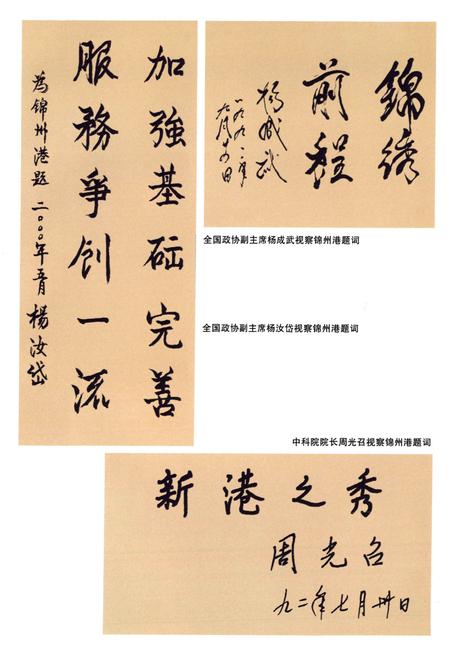 加強基础完善
服務爭创一流
為錦州港题 二〇〇〇年五月 楊汝岱
錦绣
前程
楊成武
一九九一年
全国政协副主席杨成武视察锦州港题词
全国政协副主席杨汝岱视察锦州港题词
中科院院长周光召视察锦州港题词
新港之秀
周光召
九二年七月卅日